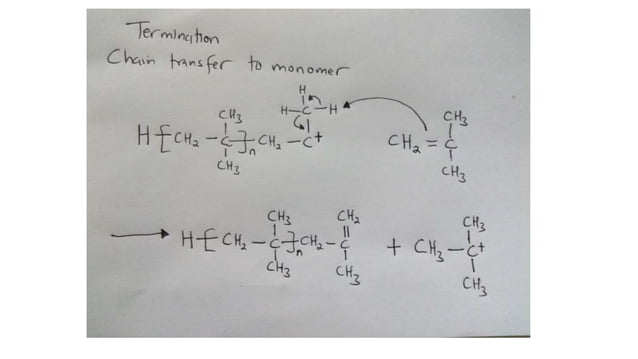 Termination
Chain transfer to monomer
H
CH₃ H–C–H CH₃
H–[CH₂–C–]ₙCH₂–C+ CH₂=C
CH₃ CH₃
CH₃ CH₂ CH₃
→ H–[CH₂–C–]ₙCH₂–C + CH₃–C+
CH₃ CH₃ CH₃